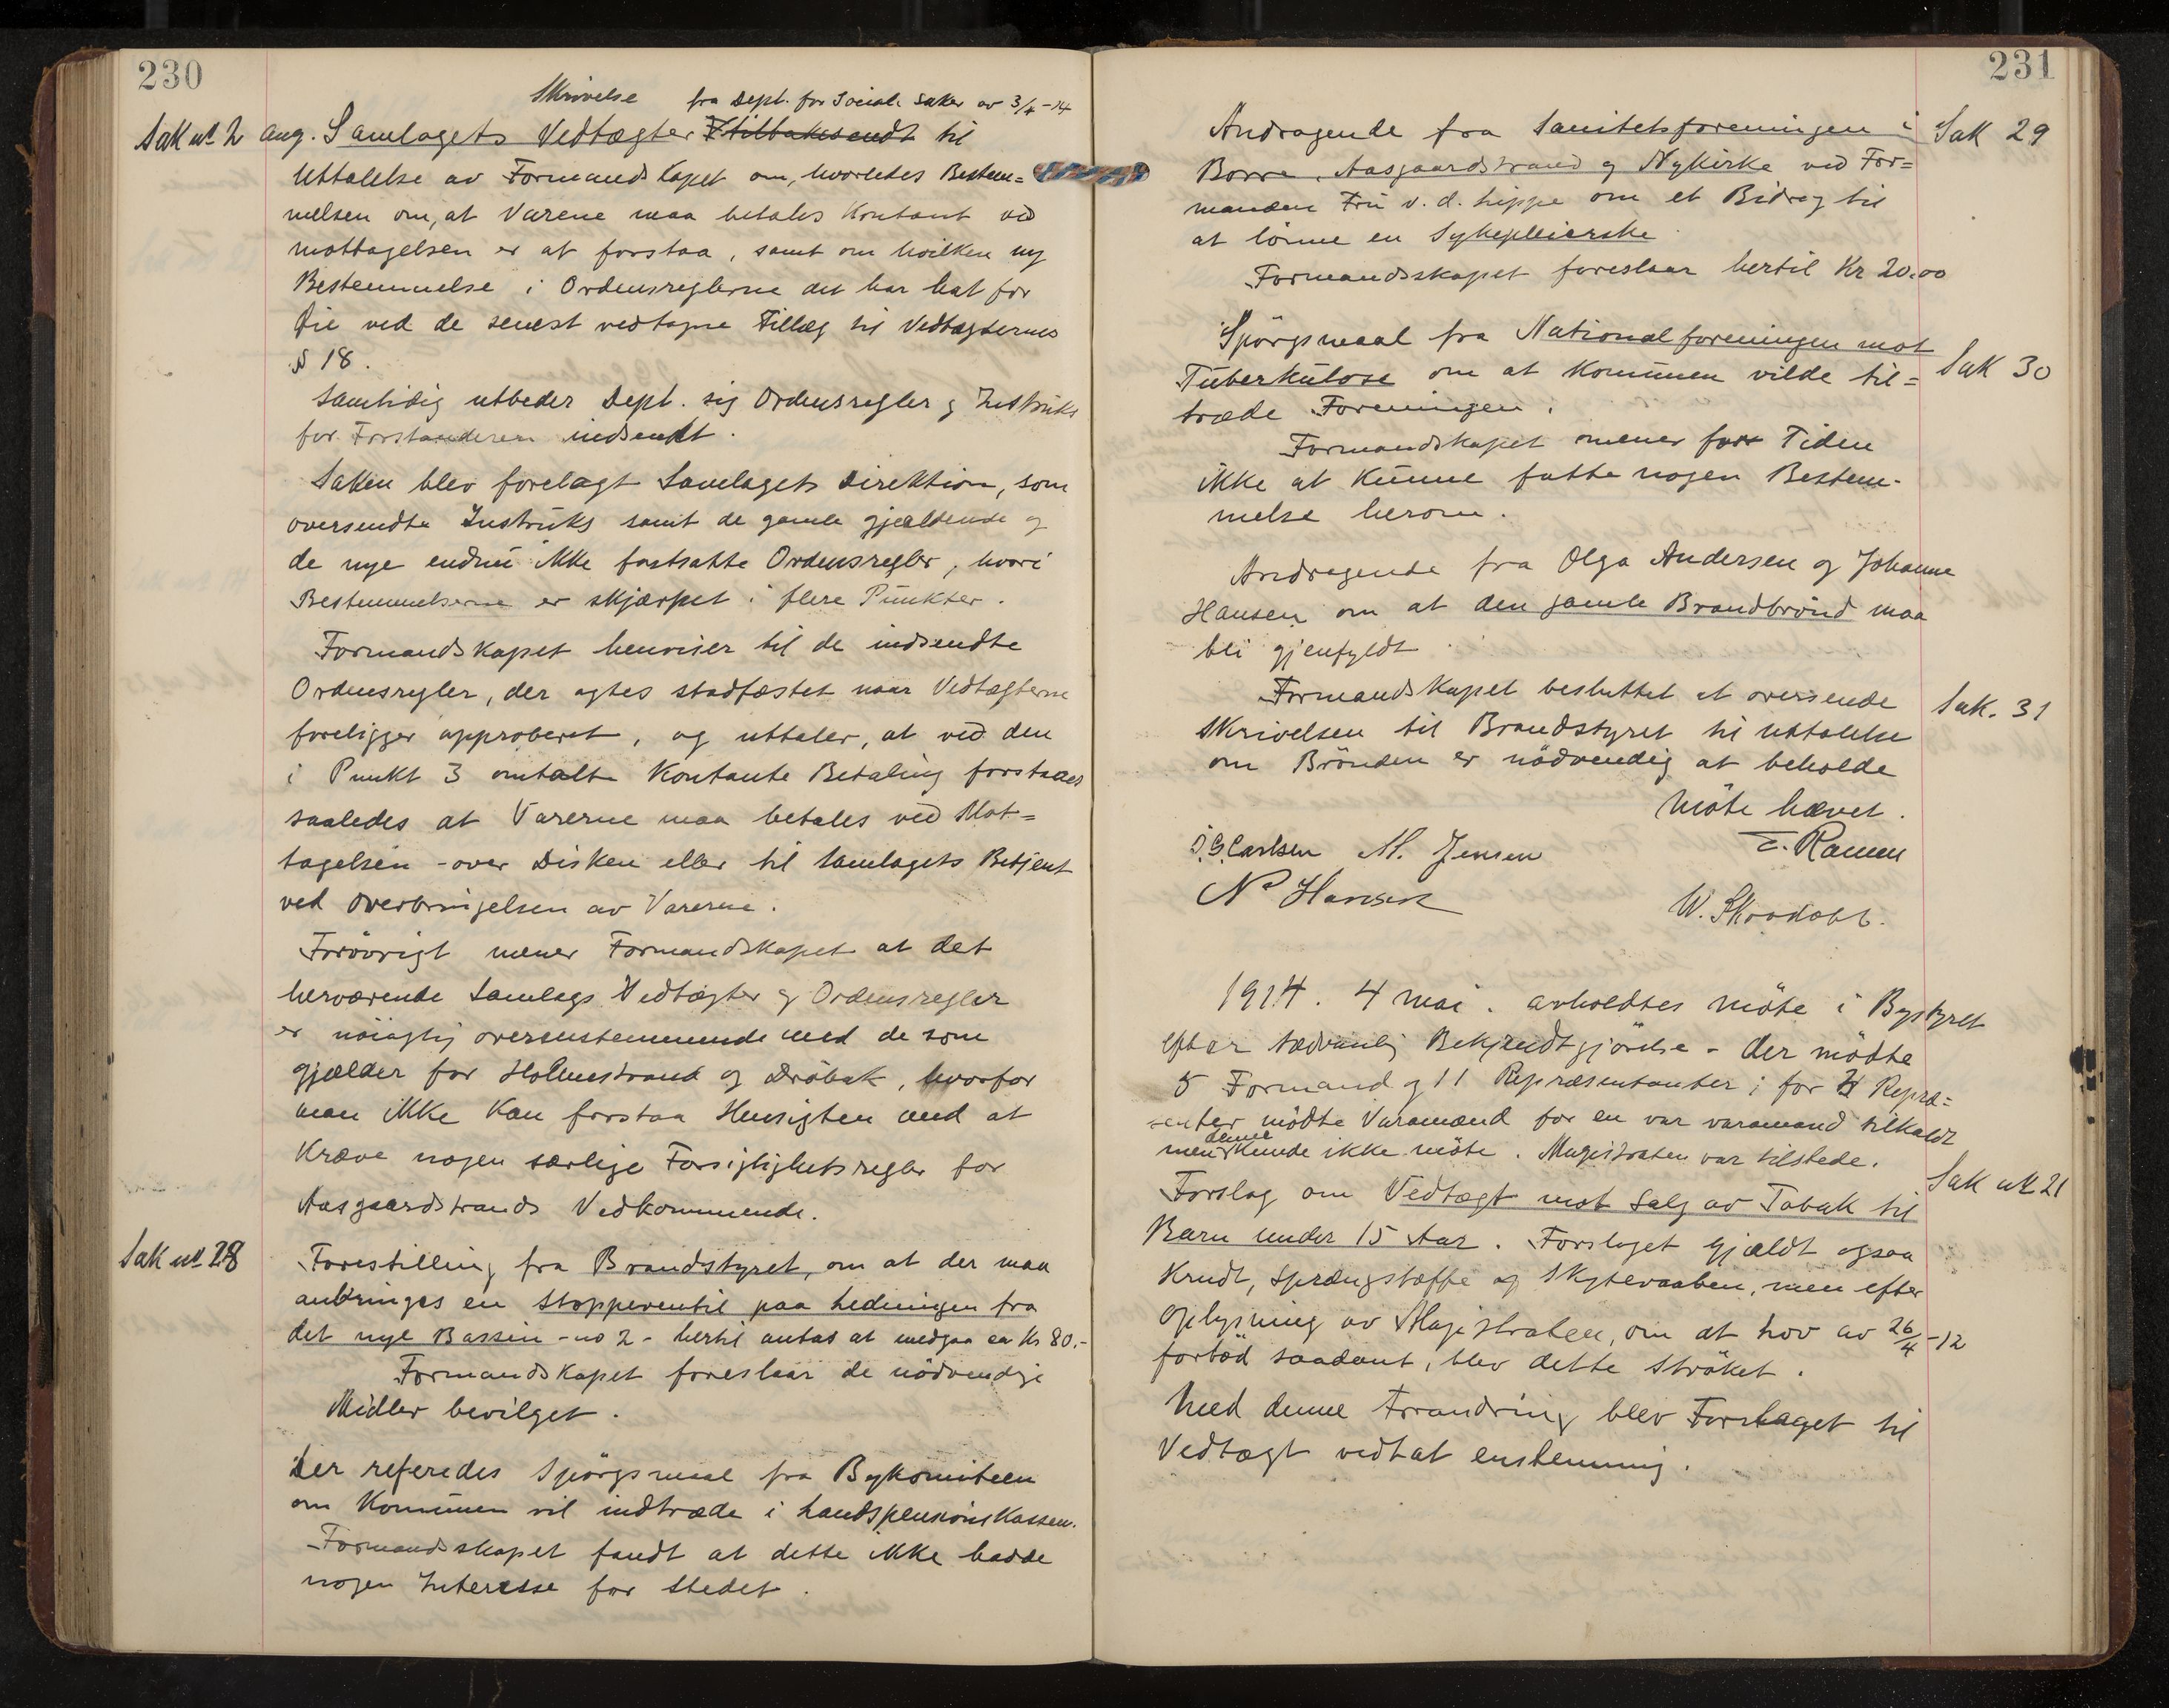 230
Skrivelse fra Dept. for Sociale Saker av 3/4-14
Sak no 2 ang. Samlagets Vedtægter tilbakesendt til
Uttalelse av Formandskapet om, hvorledes Bestem=
melsen om, at Varene maa betales Kontant ved
mottagelsen er at forstaa, samt om hvilken ny
Bestemmelse i Ordensreglerne det har hat for
Øie ved de senest vedtagne Tillæg til Vedtægternes
§ 18.
Samtidig utbeder Dept. sig Ordensregler og Instruks
for Forstanderen indsendt.
Saken blev forelagt Samlagets Direktion, som
oversendte Instruks samt de gamle gjældende og
de nye endnu ikke fastsatte Ordensregler, hvori
Bestemmelserne er skjærpet i flere Punkter.
Formandskapet henviser til de indsendte
Ordensregler, der agtes stadfæstet naar Vedtægterne
foreligger approberet, og uttaler, at ved den
i Punkt 3 omtalte Kontante Betaling forstaaes
saaledes at Varerne maa betales ved Mot=
tagelsen - over Disken eller til Samlagets Betjent
ved Overbringelsen av Varerne.
Forövrigt mener Formandskapet at det
herværende Samlags Vedtægter og Ordensregler
er nöiagtig overensstemmende med de som
gjælder for Holmestrand og Dröbak, hvorfor
man ikke kan forstaa Hensigten med at
Kræve nogen særlige Forsigtighetsregler for
Aasgaardstrands Vedkommende.
Sak no 28
Forestilling fra Brandstyret, om at der maa
anbringes en Stoppeventil paa Ledningen fra
det nye Bassin - no 2 - hertil antas at medgaa ca Kr 80.-
Formandskapet foreslaar de nödvendige
Midler bevilget.
Der referedes Spörgsmaal fra Bykomiteen
om Kommunen vil indtræde i Landspensionskassen.
Formandsskapet fandt at dette ikke hadde
nogen Interesse for Stedet.
231
Andragende fra Sanitetsforeningen i
Sak 29
Borre, Aasgaardstrand og Nykirke ved For=
manden Fru v. d. Lippe om et Bidrag til
at lönne en Sykepleierske
Formandsskapet foreslaar hertil Kr 20.00
Spörgsmaal fra Nationalforeningen mot
Sak 30
Tuberkulose om at Kommunen vilde til=
træde Foreningen.
Formandskapet mener for Tiden
ikke at kunne fatte nogen Bestem-
melse herom.
Andragende fra Olga Andersen og Johanne
Hansen om at den gamle Brandbrönd maa
bli gjenfyldt
Formandskapet besluttet at oversende
Sak. 31
Skrivelsen til Brandstyret til Uttalelse
om Brönden er nödvendig at beholde
Möte hævet.
J. G. Carlsen M. Jensen
N Hansen
1914. 4 mai. avholdtes möte i Bystyret
efter sædvanlig Bekjendtgjörelse - Der mödte
5 Formand og 11 Repræsentanter; for Repræ=
senter mödte Varamænd for en var varamand tilkaldt
men denne kunde ikke möte. Magistraten var tilstede.
Sak no 21
Forslag om Vedtægt mot Salg av Tobak til
Barn under 15 Aar. Forslaget gjældt ogsaa
Krudt, Sprængstoffe og Skytevaaben, men efter
Oplysning av Magistraten, om at Lov av 26/4-12
forböd saadant, blev dette ströket.
Med denne Forandring blev Forslaget til
Vedtægt vedtat enstemmig.